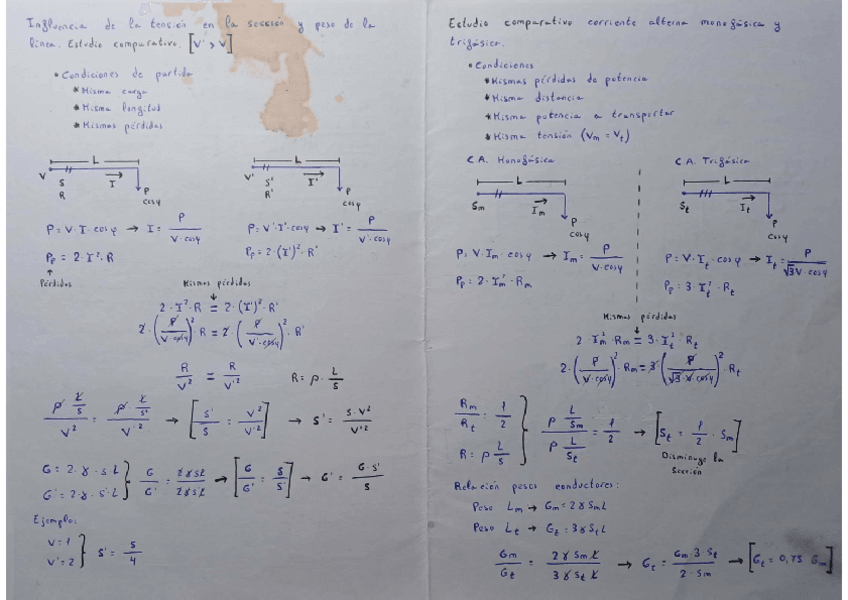 Influencia de la tensión en la sección y peso de la
línea. Estudio comparativo. [V' > V]
• Condiciones de partida
* Misma carga
* Misma longitud
* Mismas pérdidas
L
V
S
R
I
P
cosφ
L
V'
S'
R'
I'
P
cosφ
P = V · I · cosφ → I = P / V · cosφ
P = V' · I' · cosφ → I' = P / V' · cosφ
Pp = 2 · I² · R
Pp = 2 · (I')² · R'
↑
Pérdidas
Mismas pérdidas
2 · I² · R = 2 · (I')² · R'
2 · (P / V · cosφ)² · R = 2 · (P / V' · cosφ)² · R'
R / V² = R / V'²
R = ρ · L / S
ρ · L/S / V² = ρ · L/S' / V'² → [S' / S = V² / V'²] → S' = S · V² / V'²
G = 2 · γ · S · L
G' = 2 · γ · S' · L
G / G' = 2γSL / 2γS'L → [G / G' = S / S'] → G' = G · S' / S
Ejemplo:
V = 1
V' = 2
S' = S / 4
Estudio comparativo corriente alterna monofásica y
trifásica.
• Condiciones
* Mismas pérdidas de potencia
* Misma distancia
* Misma potencia a transportar
* Misma tensión (Vm = Vt)
C.A. Monofásica
C.A. Trifásica
L
Sm
Im
P
cosφ
L
St
It
P
cosφ
P = V · Im · cosφ → Im = P / V · cosφ
P = V · It · cosφ → It = P / √3 V · cosφ
Pp = 2 · Im² · Rm
Pp = 3 · It² · Rt
Mismas pérdidas
2 · Im² · Rm = 3 · It² · Rt
2 · (P / V · cosφ)² · Rm = 3 · (P / √3 · V · cosφ)² · Rt
Rm / Rt = 1 / 2
R = ρ L / S
ρ L/Sm / ρ L/St = 1 / 2 → [St = 1 / 2 · Sm]
Disminuye la
Sección
Relación pesos conductores:
Peso Lm → Gm = 2γSmL
Peso Lt → Gt = 3γStL
Gm / Gt = 2γSmL / 3γStL → Gt = Gm · 3 · St / 2 · Sm → [Gt = 0,75 Gm]